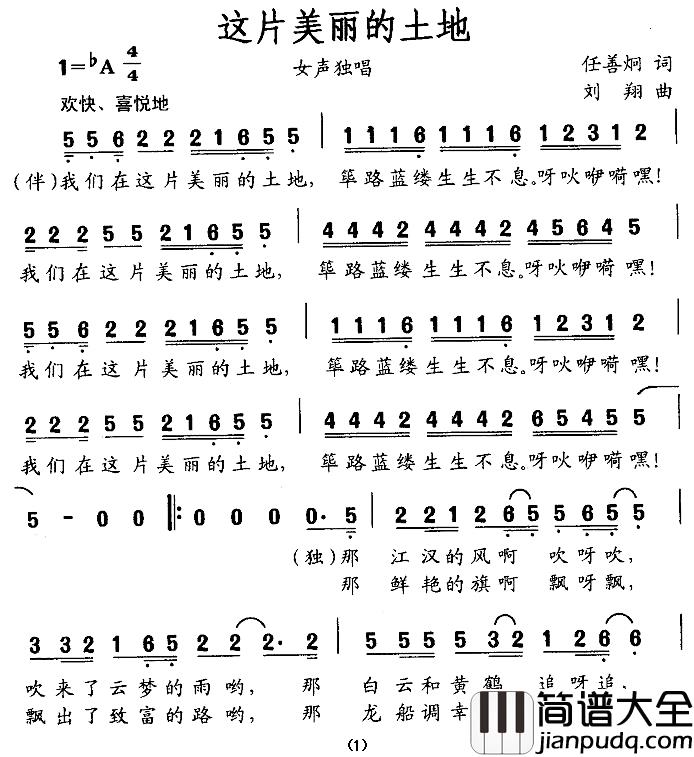 这片美丽的土地
1=♭A 4/4
女声独唱
任善炯 词
刘 翔 曲
欢快、喜悦地
5 5 6 2 2 2 1 6 5 5 | 1 1 1 6 1 1 1 6 1 2 3 1 2
(伴)我们在这片美丽的土地, 筚路蓝缕生生不息。呀吙咿嗬嘿!
2 2 2 5 5 2 1 6 5 5 | 4 4 4 2 4 4 4 2 4 5 6 4 5
我们在这片美丽的土地, 筚路蓝缕生生不息。呀吙咿嗬嘿!
5 5 6 2 2 2 1 6 5 5 | 1 1 1 6 1 1 1 6 1 2 3 1 2
我们在这片美丽的土地, 筚路蓝缕生生不息。呀吙咿嗬嘿!
2 2 2 5 5 2 1 6 5 5 | 4 4 4 2 4 4 4 2 6 5 4 5 5
我们在这片美丽的土地, 筚路蓝缕生生不息。呀吙咿嗬嘿!
5 - 0 0 ‖: 0 0 0 0· 5 | 2 2 1 2 6 5 5 6 5 5
(独)那 江汉的风啊 吹呀吹,
那 鲜艳的旗啊 飘呀飘,
3 3 2 1 6 5 2 2 2· 2 | 5 5 5 5 3 2 1 2 6 6
吹来了云梦的雨哟, 那 白云和黄鹤 追呀追、
飘出了致富的路哟, 那 龙船调幸
(1)
简谱大全
jianpudq.com